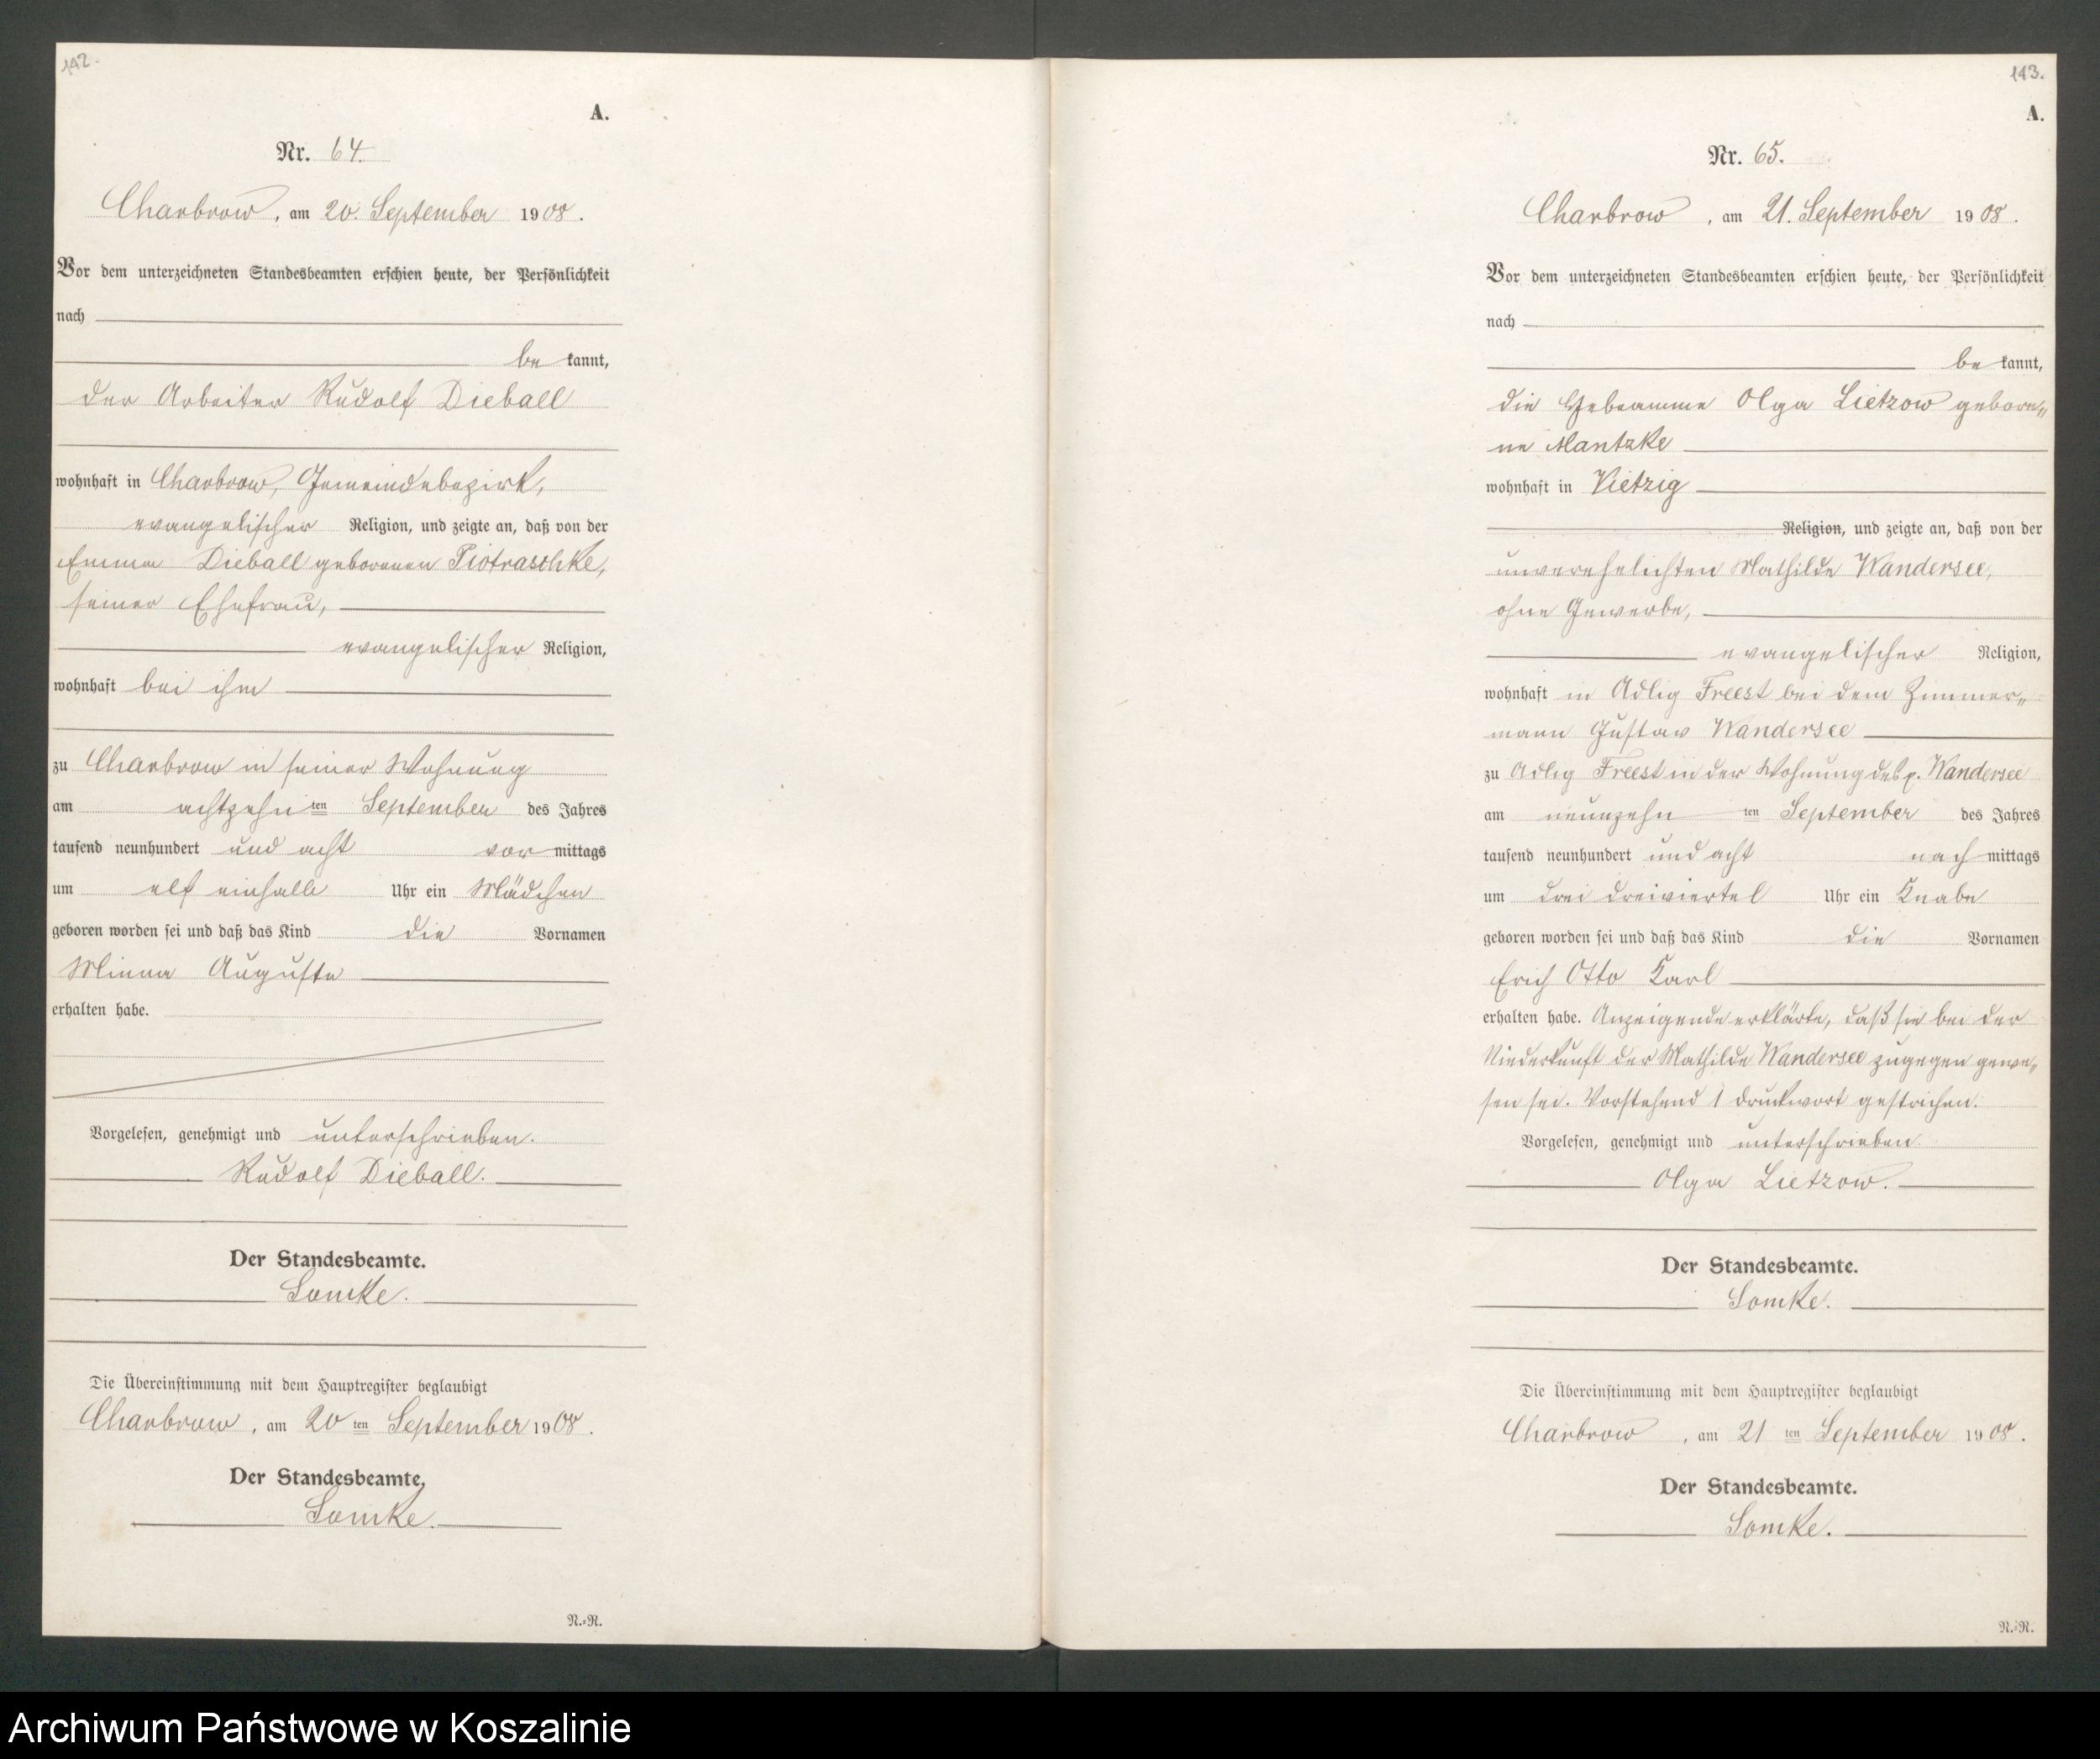 142.
A.
Nr. 64.
Charbrow, am 20. September 1908.
Vor dem unterzeichneten Standesbeamten erschien heute, der Persönlichkeit
nach
be kannt,
der Arbeiter Rudolf Dieball
wohnhaft in Charbrow, Gemeindebezirk,
evangelischer Religion, und zeigte an, daß von der
Emma Dieball geborenen Piotraschke,
seiner Ehefrau,
evangelischer Religion,
wohnhaft bei ihm
zu Charbrow in seiner Wohnung
am achtzehn ten September des Jahres
tausend neunhundert und acht vor mittags
um elf einhalb Uhr ein Mädchen
geboren worden sei und daß das Kind die Vornamen
Minna Auguste
erhalten habe.
Vorgelesen, genehmigt und unterschrieben.
Rudolf Dieball.
Der Standesbeamte.
Somke.
Die Übereinstimmung mit dem Hauptregister beglaubigt
Charbrow, am 20 ten September 1908.
Der Standesbeamte,
Somke.
N.=R.
143.
A.
Nr. 65.
Charbrow, am 21. September 1908.
Vor dem unterzeichneten Standesbeamten erschien heute, der Persönlichkeit
nach
be kannt,
die Hebeamme Olga Lietzow gebore„
ne Mantzke
wohnhaft in Vietzig
Religion, und zeigte an, daß von der
unverehelichten Mathilde Wandersee,
ohne Gewerbe,
evangelischer Religion,
wohnhaft in Adlig Freest bei dem Zimmer„
mann Gustav Wandersee
zu Adlig Freest in der Wohnung des p. Wandersee
am neunzehn ten September des Jahres
tausend neunhundert und acht nach mittags
um drei dreiviertel Uhr ein Knabe
geboren worden sei und daß das Kind die Vornamen
Erich Otto Karl
erhalten habe. Anzeigende erklärte, daß sie bei der
Niederkunft der Mathilde Wandersee zugegen gewe„
sen sei. Vorstehend 1 Druckwort gestrichen.
Vorgelesen, genehmigt und unterschrieben.
Olga Lietzow.
Der Standesbeamte.
Somke.
Die Übereinstimmung mit dem Hauptregister beglaubigt
Charbrow, am 21 ten September 1908.
Der Standesbeamte.
Somke.
N.=R.
Archiwum Państwowe w Koszalinie